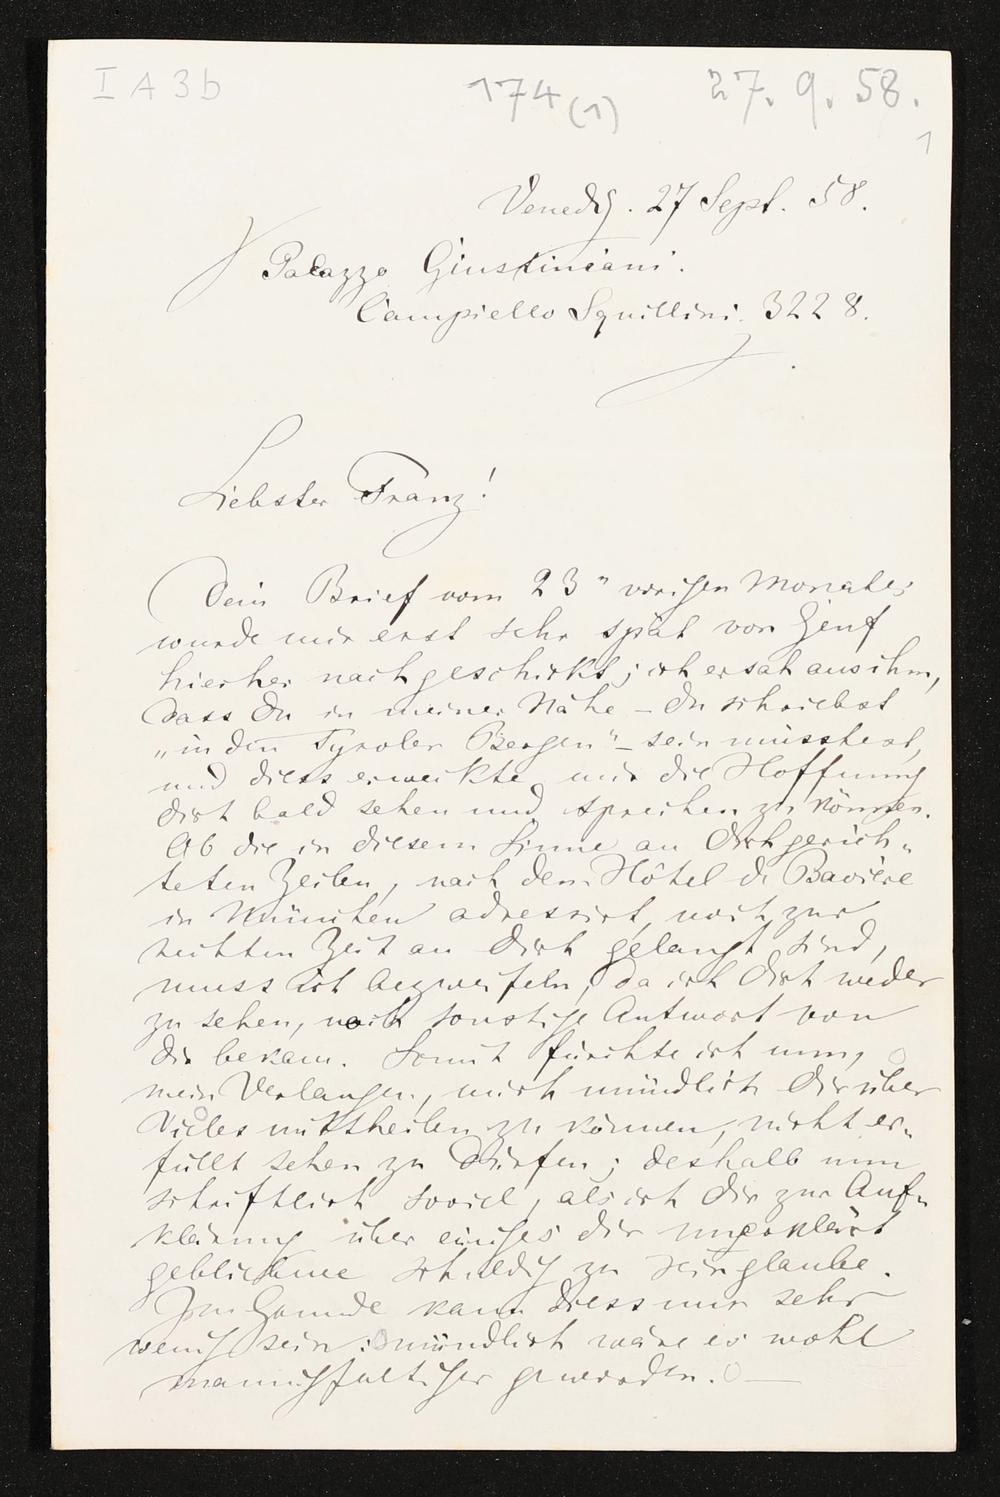 I A 3 b 174 (1) 27. 9. 58.
1
Venedig. 27 Sept. 58.
Palazzo Giustiniani.
Campiello Squillini. 3228.
Liebster Franz!
Dein Brief vom 23" vorigen Monates
wurde mir erst sehr spät von Genf
hierher nachgeschickt; ich ersah aus ihm,
dass Du in meiner Nähe – Du schriebst
„in den Tyroler Bergen" – sein müsstest,
und diess erweckte mir die Hoffnung
dich bald sehen und sprechen zu können.
Ob die in diesem Sinne an Dich gerich„
teten Zeilen, nach dem Hôtel de Bavière
in München adressirt, noch zur
rechten Zeit an Dich gelangt sind,
muss ich bezweifeln, da ich Dich weder
zu sehen, noch sonstige Antwort von
dir bekam. Somit fürchte ich nun,
mein Verlangen, mich mündlich Dir über
Vieles mittheilen zu können, nicht er„
füllt sehen zu dürfen; deshalb nun
schriftlich soviel, als ich Dir zur Auf„
klärung über einiges dir ungeklärt
gebliebene schuldig zu sein glaube.
Im Grunde kann diess nur sehr
wenig sein: mündlich wäre es wohl
mannigfaltiger geworden. —